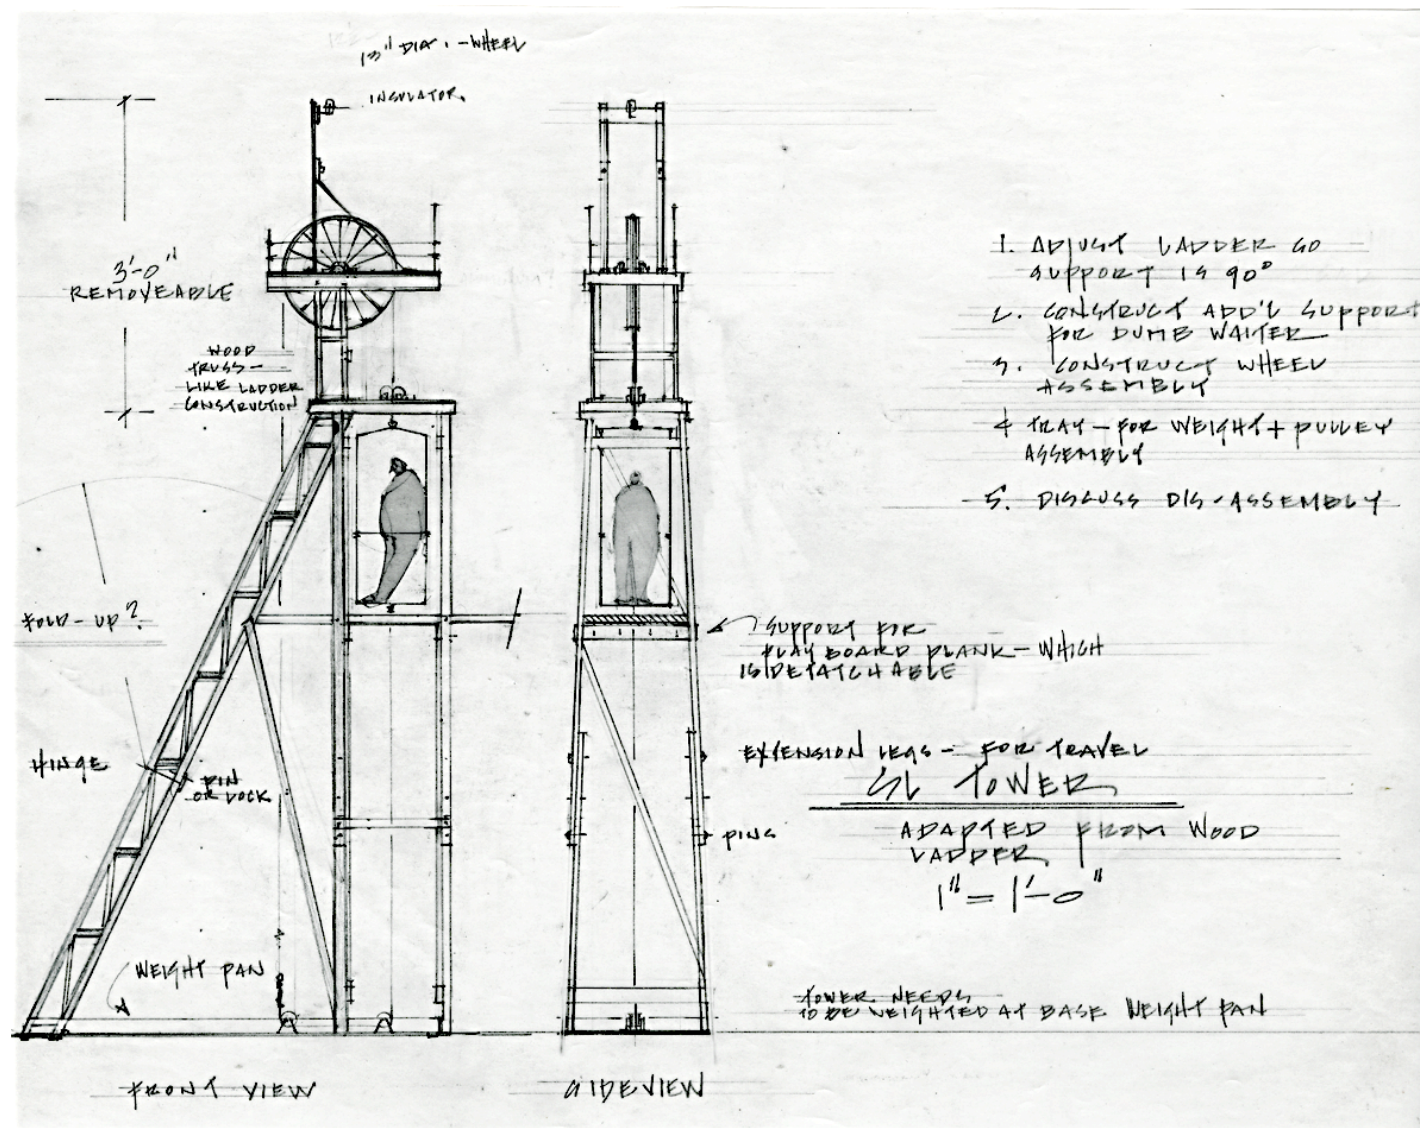 13" DIA. - WHEEL
INSULATOR.
3'-0"
REMOVEABLE
WOOD
TRUSS -
LIKE LADDER
CONSTRUCTION
FOLD-UP?
HINGE
PIN
OR LOCK
WEIGHT PAN
FRONT VIEW
SIDEVIEW
1. ADJUST LADDER SO
SUPPORT IS 90°
2. CONSTRUCT ADD'L SUPPORT
FOR DUMB WAITER
3. CONSTRUCT WHEEL
ASSEMBLY
4 TRAY - FOR WEIGHT + PULLEY
ASSEMBLY
5. DISCUSS DIS-ASSEMBLY
SUPPORT FOR
PLAY BOARD PLANK - WHICH
IS DETATCHABLE
EXTENSION LEGS - FOR TRAVEL
SL TOWER
ADAPTED FROM WOOD
LADDER
1" = 1'-0"
PINS
TOWER NEEDS
TO BE WEIGHTED AT BASE WEIGHT PAN